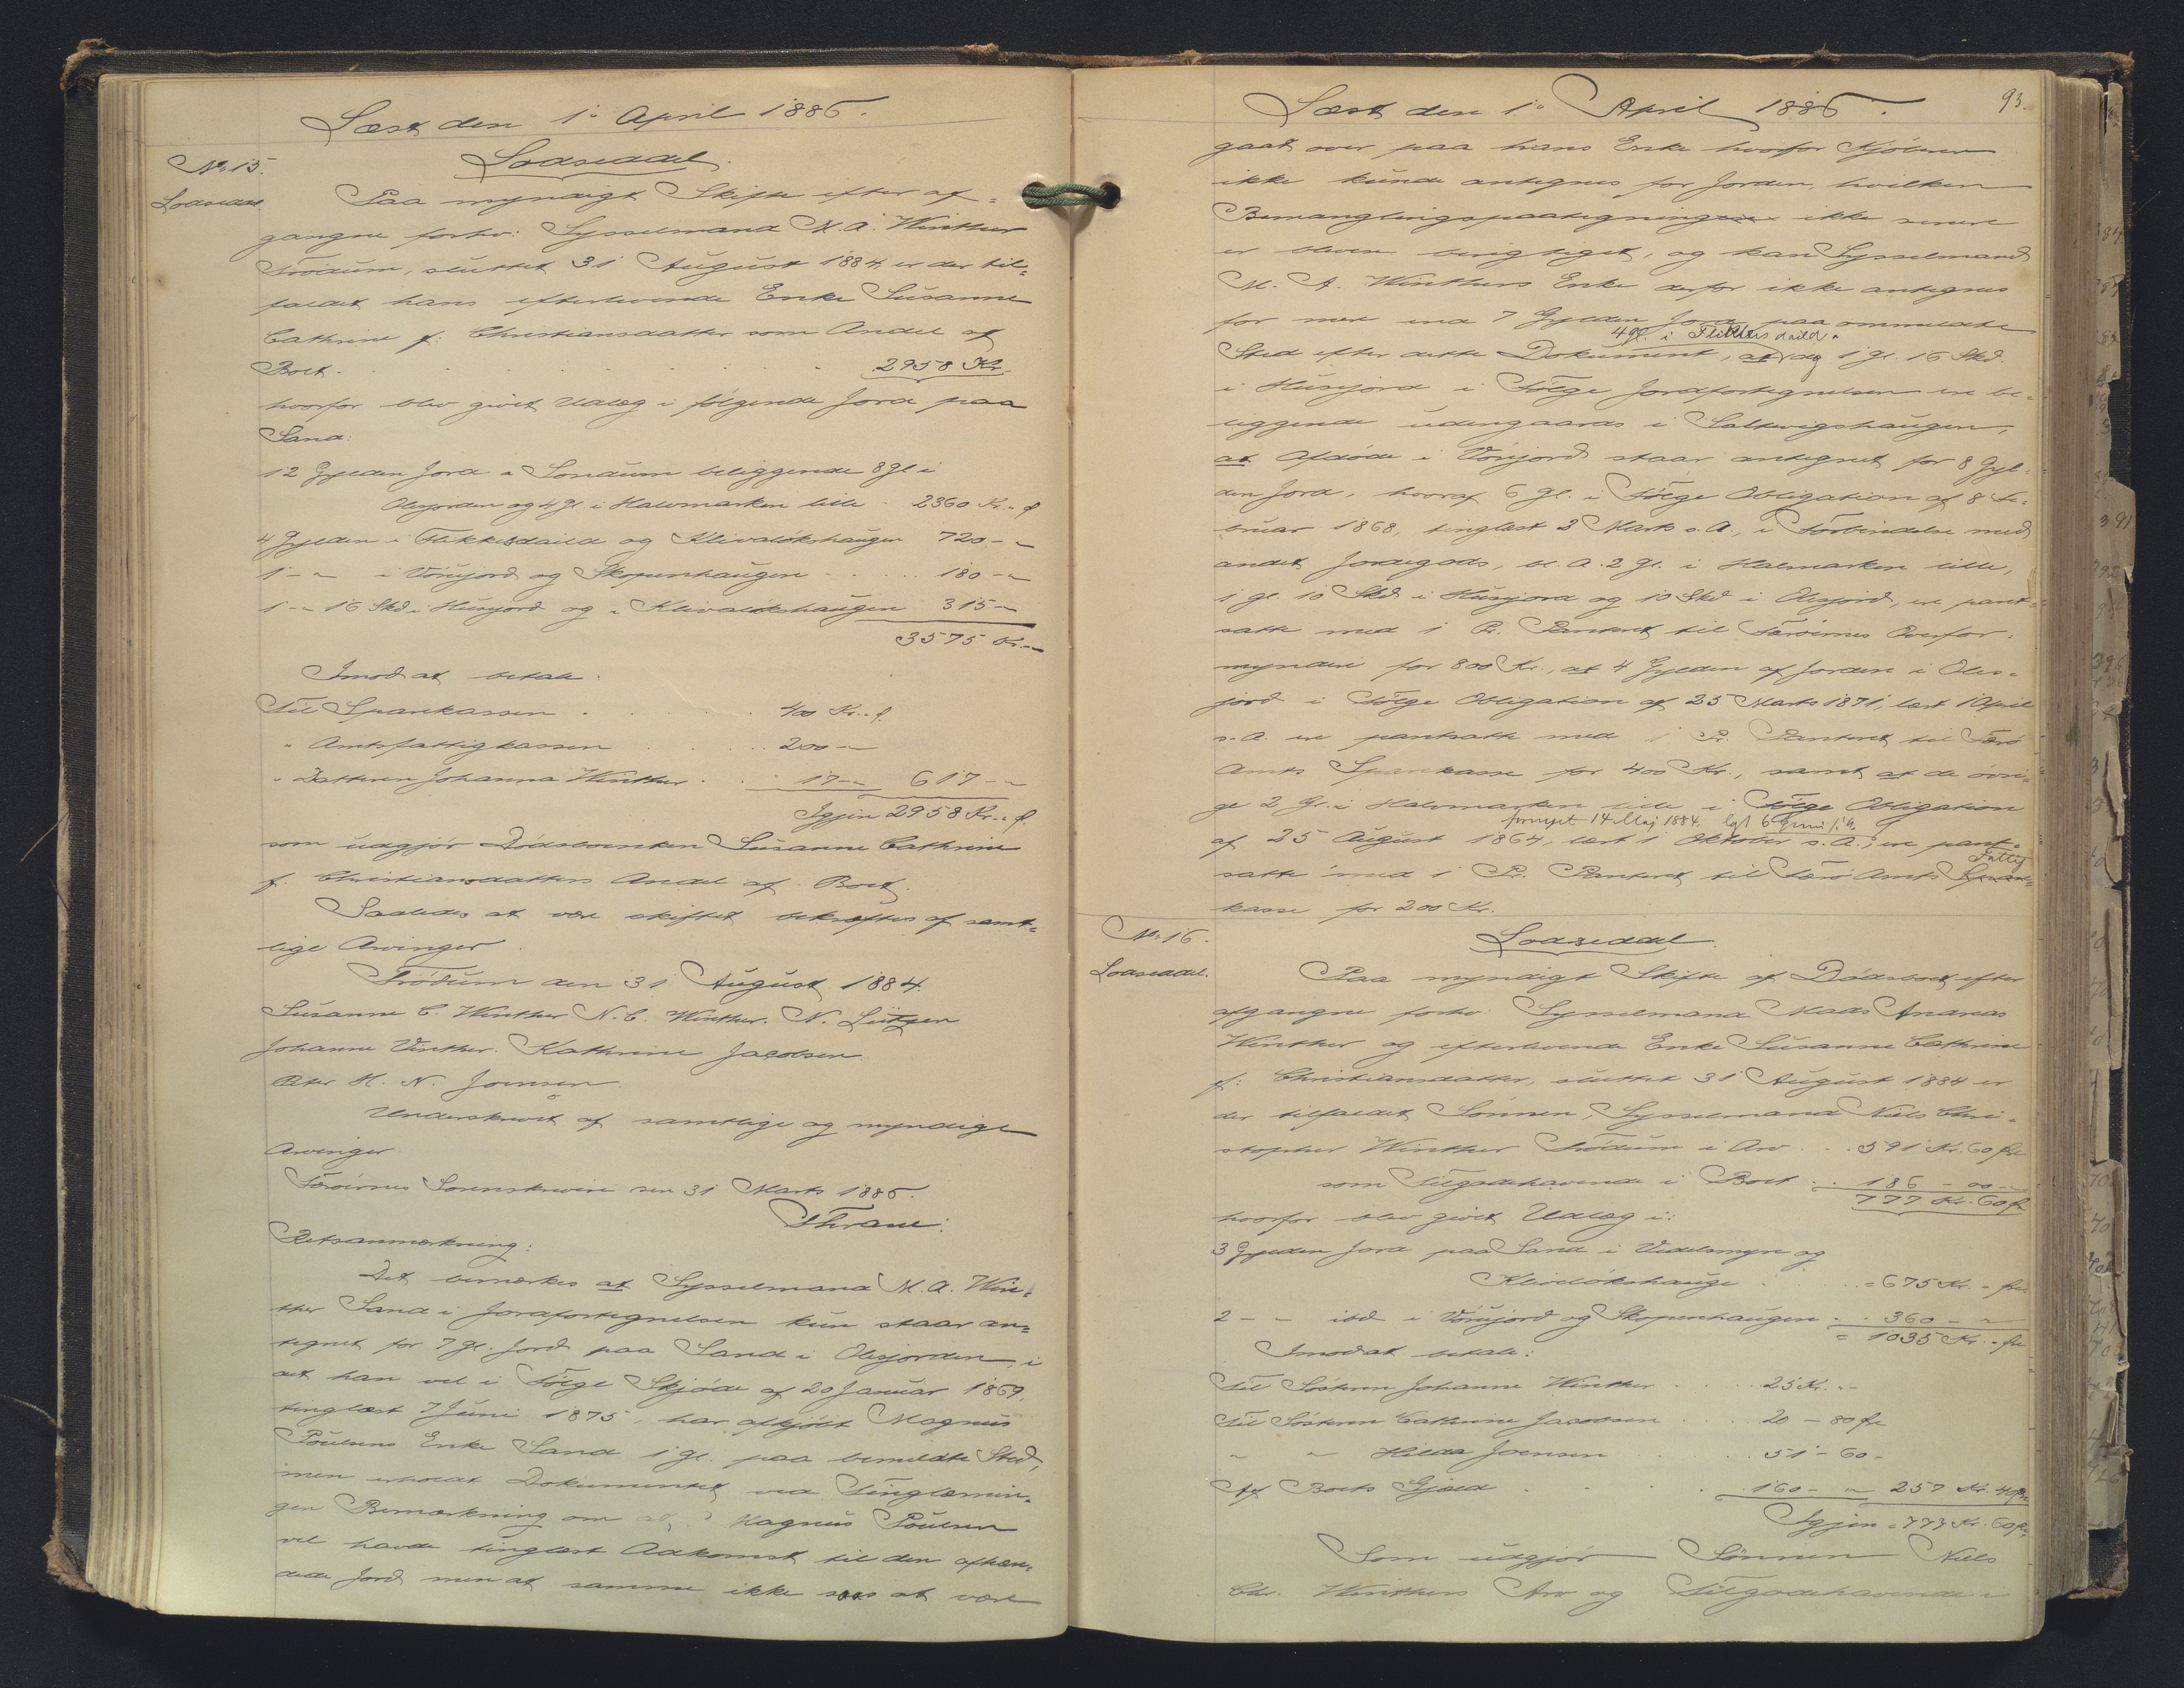 Læst den 1. April 1886.
No 15.
Lodseddel
Lodseddel.
Paa myndigt Skifte efter af-
gangne forhv: Sysselmand M. A. Winther
Trödum, sluttet 31 August 1884 er der til-
faldet hans efterlevende Enke Susanne
Cathrine f: Christiansdatter som Andel af
Boet . . . . . . . 2958 Kr.
hvorfor blev givet Udlæg i følgende Jord paa
Sand:
12 Gylden Jord a Sondum beliggende 8 gl i
Olesjorden og 4 gl. i Halvmarken lille . 2360 Kr. " ø
4 Gylden i Flikkesdaild og Klivaløkshaugen 720 - "
1 - " i Vörrjord og Skopenhaugen . . . 180 - "
1 - " 16 Skd i Husejord og i Klivaløkshaugen 315 - "
3575 Kr. "
Imod at betale:
Til Sparekassen . . . . . 400 Kr. " ø.
" Amtsfattigkassen . . . . 200 - "
" Datteren Johanna Winther . . 17 - " 617 - "
Igjen 2958 Kr. " ø.
som udgjør Dødsboenken Susanne Cathrine
f. Christiansdatters Andel af Boet.
Saaledes at være skiftet bekræftes af samt-
lige Arvinger.
Trödum den 31 August 1884.
Susanne C. Winther N. C. Winther. N. Lützen
Johanne Vinther. Kathrine Jacobsen.
Peter H. N. Joensen.
Underskrevet af samtlige og myndige
Arvinger
Færøernes Sorenskriveri den 31 Marts 1886.
Thrane.
Retsanmærkning:
Det bemærkes at Sysselmand M. A. Win-
ther Sand i Jordfortegnelsen kun staar an-
tegnet for 7 gl. Jord paa Sand i Olesjorden, i
det han vel i Følge Skjøde af 20 Januar 1869,
tinglæst 7 Juni 1875, har afkjøbt Magnus
Poulsens Enke Sand 1 gl. paa bemeldte Sted,
men erholdt Dokumentet ved Tinglæsnin-
gen Bemærkning om at Magnus Poulsen
vel havde tinglæst Adkomst til den afhæn-
dede Jord men at samme ikke saas at være
Læst den 1. April 1886.
93.
gaat over paa hans Enke hvorfor Kjøberen
ikke kunde antegnes for Jorden, hvilken
Bemanglingspaategning ikke senere
er bleven berigtiget, og kan Sysselmand
M. A. Winthers Enke derfor ikke antegnes
for mere end 7 Gylden Jord paa ommeldte
4 gl. i Flikkesdaild
Sted efter dette Dokument, at og 1 gl. 16 Skd.
i Husejord i Følge Jordfortegnelsen ere be-
liggende udengaards i Saltvigshaugen,
at Afdøde i Vörrjord staar antegnet for 8 Gyl-
den Jord, hvoraf 6 gl. i Følge Obligation af 8 Fe-
bruar 1868, tinglæst 2 Marts s. A., i Forbindelse med
andet Jordegods, bl. A. 2 gl. i Halmarken lille,
1 gl. 10 Skd i Husejord og 10 Skd i Olesjord, ere pant-
satte med 1 Pr. Panteret til Færøernes Overfor-
mynderi for 800 Kr., at 4 Gylden af Jorden i Oles-
jord i Følge Obligation af 25 Marts 1871, læst 1 April
s. A. ere pantsatte med 1 Pr. Panteret til Færø
Amts Sparekasse for 400 Kr., samt at de øvri-
ge 2 Gl. i Halvmarken lille i Følge Obligation
fornyet 14 Maj 1884, lgl 6 Juni s. A.
af 25 August 1864, læst 1 Oktober s. A., ere pant-
Fattig
satte med 1 Pr. Panteret til Færø Amts Spare-
kasse for 200 Kr.
No 16.
Lodseddel.
Lodseddel.
Paa myndigt Skifte af Dødsboet efter
afgangne forhv: Sysselmand Mads Andreas
Winther og efterlevende Enke Susanne Cathrine
f: Christiansdatter, sluttet 31 August 1884 er
der tilfaldet Sønnen, Sysselmand Niels Chri-
stopher Winther Trödum i Arv . . 591 Kr. 60 øre
som Tilgodehavende i Boet . . 186 - 00 -
777 Kr. 60 ør
hvorfor blev givet Udlæg i:
3 Gylden Jord paa Sand i Vedelsmyre og
Klivaløkshauge . . . . = 675 Kr. " øre
2 - " ibd i Vörrjord og Skopenhaugen . . 360 - "
= 1035 Kr. " øre
Imod at betale:
Til Søsteren Johanne Winther . . 25 Kr. " -
Til Søsteren Cathrine Jacobsen . . 20 - 80 øre
" " Hilda Joensen . . 51 - 60 -
Af Boets Gjæld . . . . 160 - " 257 Kr. 40 øre
Igjen = 777 Kr. 60 ø.
Som udgjør Sönnen Niels
Chr. Winthers Arv og Tilgodehavende i